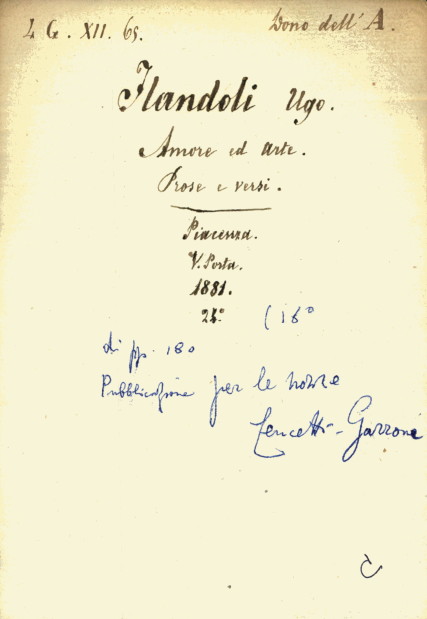 L G. XII. 65. Dono dell'A.
Flandoli Ugo.
Amore ed Arte.
Prose e versi.
Piacenza.
V. Porta.
1881.
24° (16°
di pp. 180
Pubblicazione per le nozze
Cencetti-Garrone
C